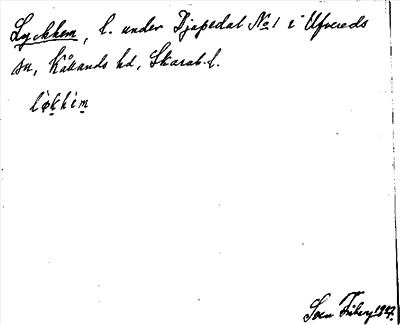 Lyckhem, l. under Djupedal No 1 i Ufvereds
sn, Kållands hd, Skarab. l.
l̀økhèm
Sven Friberg 1927.